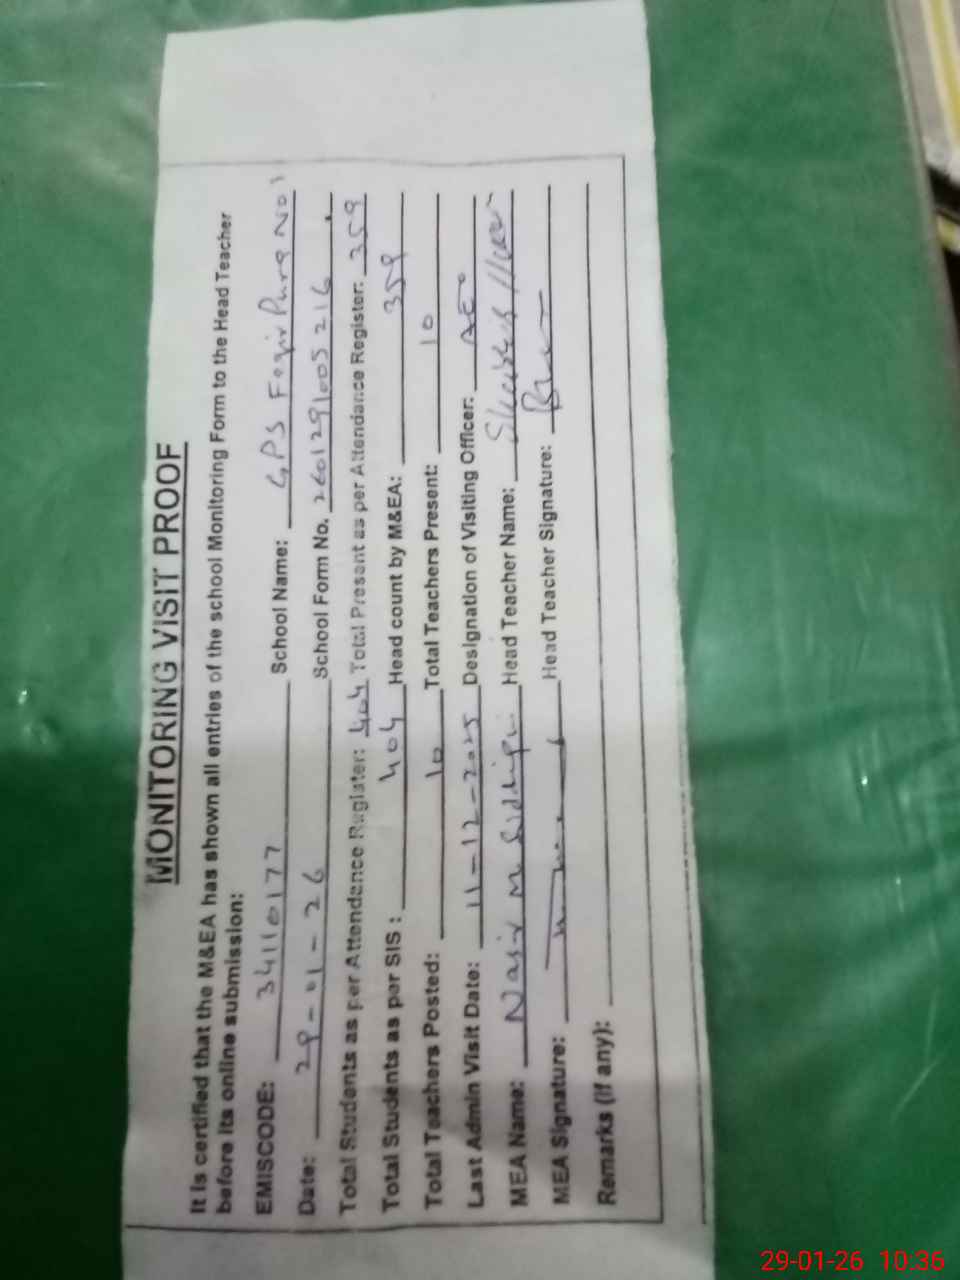 MONITORING VISIT PROOF
It is certified that the M&EA has shown all entries of the school Monitoring Form to the Head Teacher
before its online submission:
EMISCODE: 34110177 School Name: GPS Faqir Pura No 1
Date: 29-01-26 School Form No. 2601291005216
Total Students as per Attendance Register: 404 Total Present as per Attendance Register: 359
Total Students as per SIS: 404 Head count by M&EA: 359
Total Teachers Posted: 10 Total Teachers Present: 10
Last Admin Visit Date: 11-12-2025 Designation of Visiting Officer: AEO
MEA Name: Nasir M Siddiqui Head Teacher Name:
MEA Signature: Head Teacher Signature:
Remarks (if any):
29-01-26 10:36